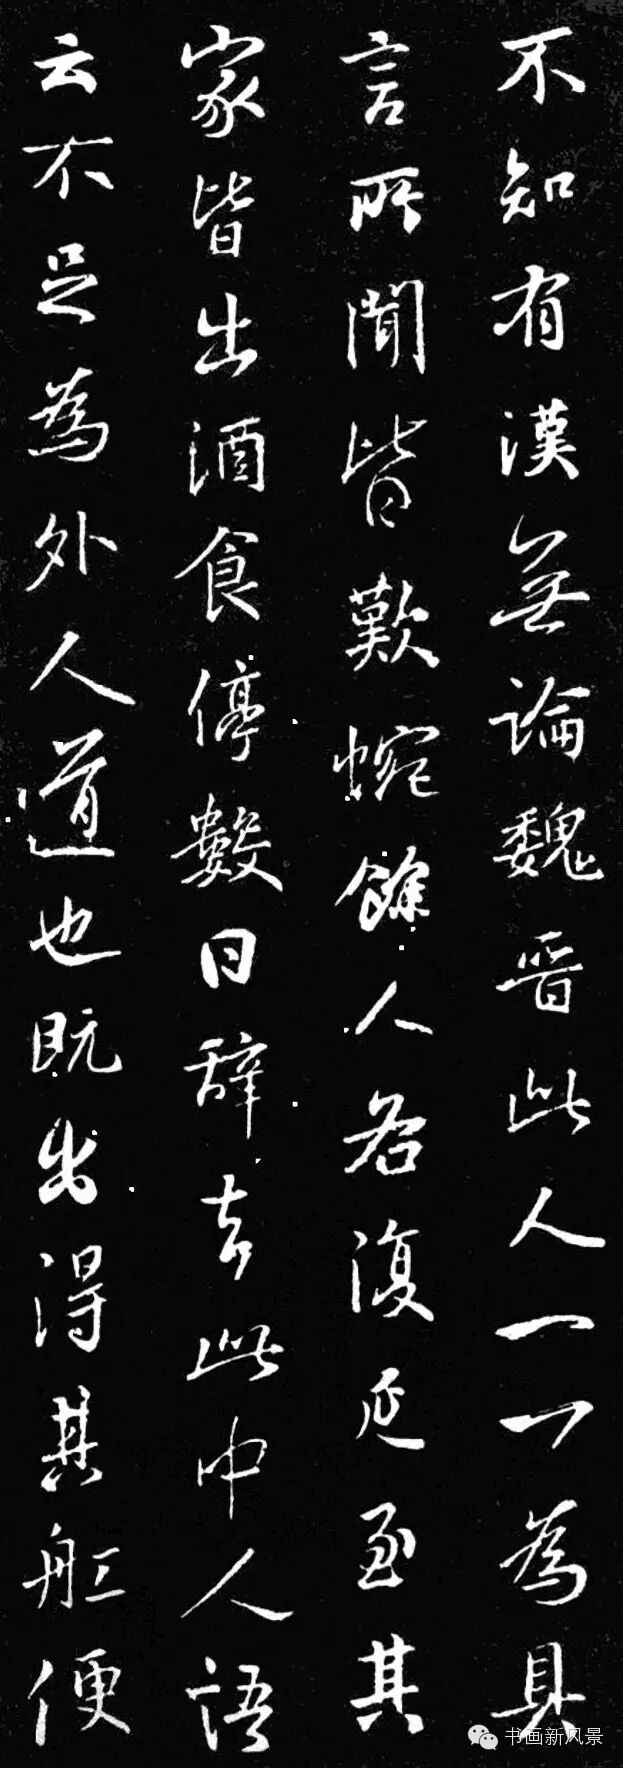 不知有漢無論魏晉此人一一為具
言所聞皆歎惋餘人各復延至其
家皆出酒食停數日辭去此中人語
云不足為外人道也既出得其舡便
书画新风景